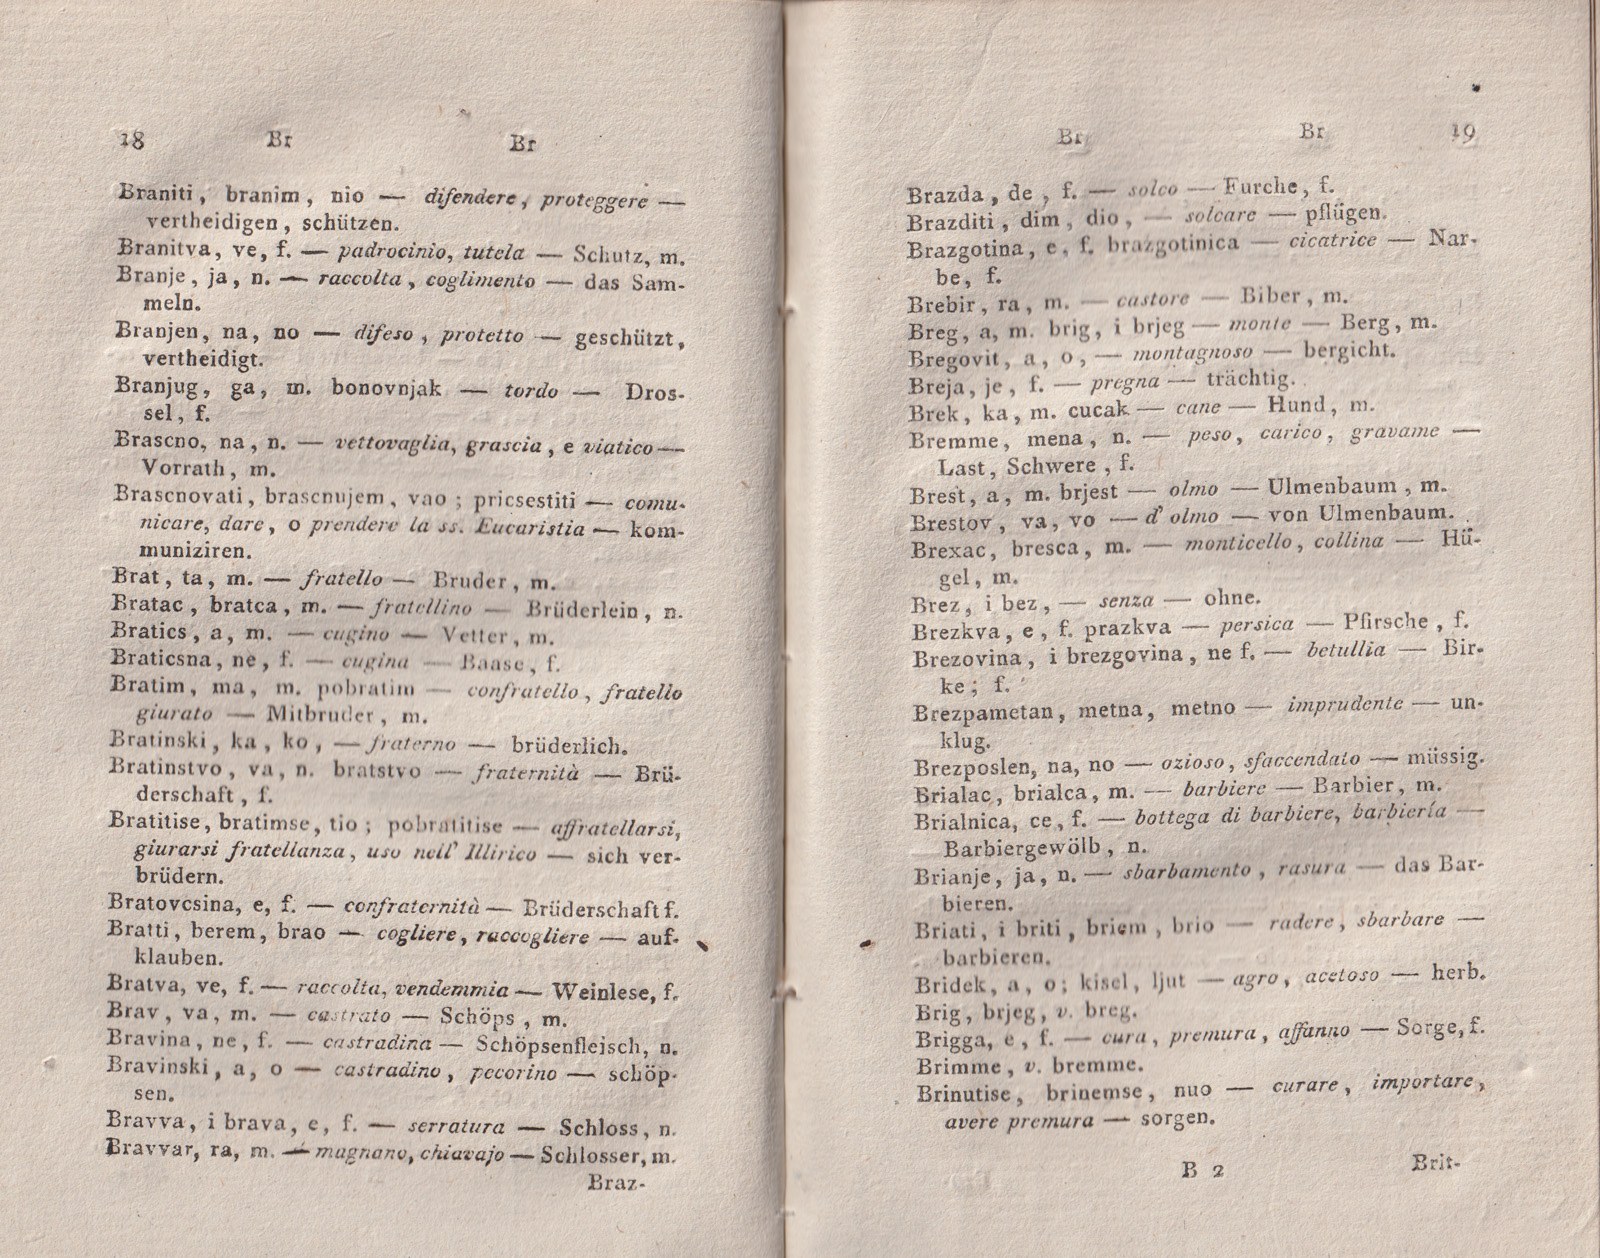 18 Br Br
Braniti, branim, nio — difendere, proteggere —
vertheidigen, schützen.
Branitva, ve, f. — padrocinio, tutela — Schutz, m.
Branje, ja, n. — raccolta, coglimento — das Sam-
meln.
Branjen, na, no — difeso, protetto — geschützt,
vertheidigt.
Branjug, ga, m. bonovnjak — tordo — Dros-
sel, f.
Brascno, na, n. — vettovaglia, grascia, e viatico —
Vorrath, m.
Brascnovati, brascnujem, vao; pricsestiti — comu-
nicare, dare, o prendere la ss. Eucaristia — kom-
muniziren.
Brat, ta, m. — fratello — Bruder, m.
Bratac, bratca, m. — fratellino — Brüderlein, n.
Bratics, a, m. — cugino — Vetter, m.
Braticsna, ne, f. — cugina — Baase, f.
Bratim, ma, m. pobratim — confratello, fratello
giurato — Mitbruder, m.
Bratinski, ka, ko, — fraterno — brüderlich.
Bratinstvo, va, n. bratstvo — fraternità — Brü-
derschaft, f.
Bratitise, bratimse, tio; pobratitise — affratellarsi,
giurarsi fratellanza, uso nell' Illirico — sich ver-
brüdern.
Bratovcsina, e, f. — confraternità — Brüderschaft f.
Bratti, berem, brao — cogliere, raccogliere — auf-
klauben.
Bratva, ve, f. — raccolta, vendemmia — Weinlese, f.
Brav, va, m. — castrato — Schöps, m.
Bravina, ne, f. — castradina — Schöpsenfleisch, n.
Bravinski, a, o — castradino, pecorino — schöp-
sen.
Bravva, i brava, e, f. — serratura — Schloss, n.
Bravvar, ra, m. — magnano, chiavajo — Schlosser, m.
Braz-
Br Br 19
Brazda, de, f. — solco — Furche, f.
Brazditi, dim, dio, — solcare — pflügen.
Brazgotina, e, f. brazgotinica — cicatrice — Nar-
be, f.
Brebir, ra, m. — castore — Biber, m.
Breg, a, m. brig, i brjeg — monte — Berg, m.
Bregovit, a, o, — montagnoso — bergicht.
Breja, je, f. — pregna — trächtig.
Brek, ka, m. cucak — cane — Hund, m.
Bremme, mena, n. — peso, carico, gravame —
Last, Schwere, f.
Brest, a, m. brjest — olmo — Ulmenbaum, m.
Brestov, va, vo — d' olmo — von Ulmenbaum.
Brexac, bresca, m. — monticello, collina — Hü-
gel, m.
Brez, i bez, — senza — ohne.
Brezkva, e, f. prazkva — persica — Pfirsche, f.
Brezovina, i brezgovina, ne f. — betullia — Bir-
ke; f.
Brezpametan, metna, metno — imprudente — un-
klug.
Brezposlen, na, no — ozioso, sfaccendato — müssig.
Brialac, brialca, m. — barbiere — Barbier, m.
Brialnica, ce, f. — bottega di barbiere, barbieria —
Barbiergewölb, n.
Brianje, ja, n. — sbarbamento, rasura — das Bar-
bieren.
Briati, i briti, briem, brio — radere, sbarbare —
barbieren.
Bridek, a, o; kisel, ljut — agro, acetoso — herb.
Brig, brjeg, v. breg.
Brigga, e, f. — cura, premura, affanno — Sorge, f.
Brimme, v. bremme.
Brinutise, brinemse, nuo — curare, importare,
avere premura — sorgen.
B 2 Brit-